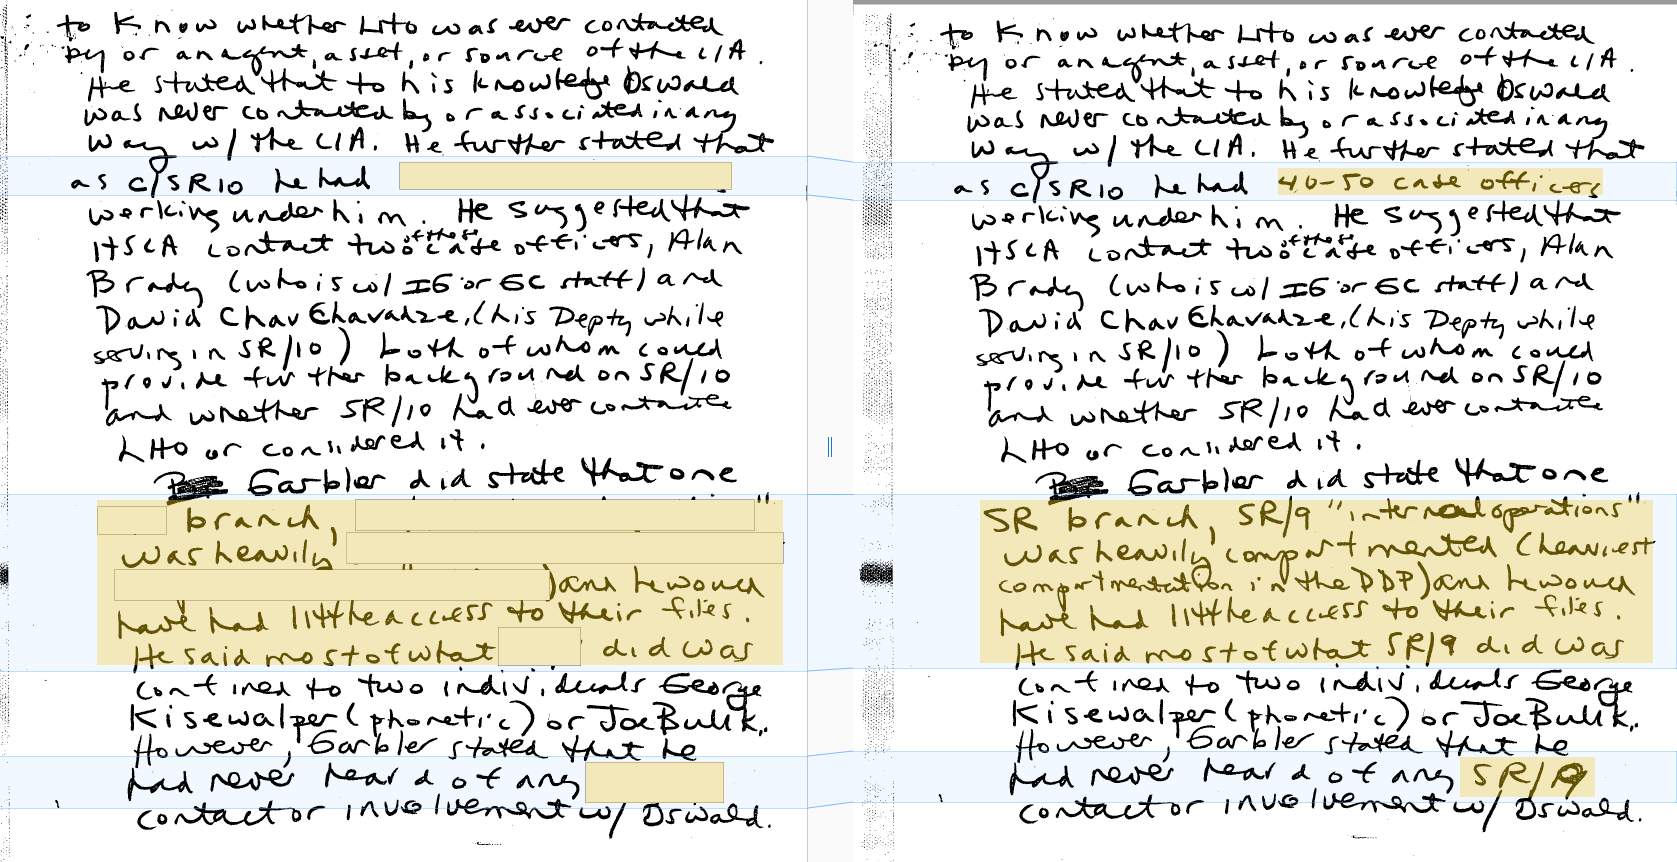 to know whether LHO was ever contacted
by or an agent, asset, or source of the CIA.
He stated that to his knowledge Oswald
was never contacted by or associated in any
way w/ the CIA. He further stated that
as C/SR10 he had
working under him. He suggested that
HSCA contact two of those case officers, Alan
Brady (who is w/ IG or GC staff) and
David Chavchavadze, (his Depty while
serving in SR/10) both of whom could
provide further background on SR/10
and whether SR/10 had ever contacted
LHO or considered it.
Garbler did state that one
branch,
was heavily
) and he would
have had little access to their files.
He said most of what did was
confined to two individuals George
Kisewalper (phonetic) or Joe Bulik.
However, Garbler stated that he
had never heard of any
contact or involvement w/ Oswald.
to know whether LHO was ever contacted
by or an agent, asset, or source of the CIA.
He stated that to his knowledge Oswald
was never contacted by or associated in any
way w/ the CIA. He further stated that
as C/SR10 he had 40-50 case officers
working under him. He suggested that
HSCA contact two of those case officers, Alan
Brady (who is w/ IG or GC staff) and
David Chavchavadze, (his Depty while
serving in SR/10) both of whom could
provide further background on SR/10
and whether SR/10 had ever contacted
LHO or considered it.
Garbler did state that one
SR branch, SR/9 "internal operations"
was heavily compartmented (heaviest
compartmentation in the DDP) and he would
have had little access to their files.
He said most of what SR/9 did was
confined to two individuals George
Kisewalper (phonetic) or Joe Bulik.
However, Garbler stated that he
had never heard of any SR/9
contact or involvement w/ Oswald.